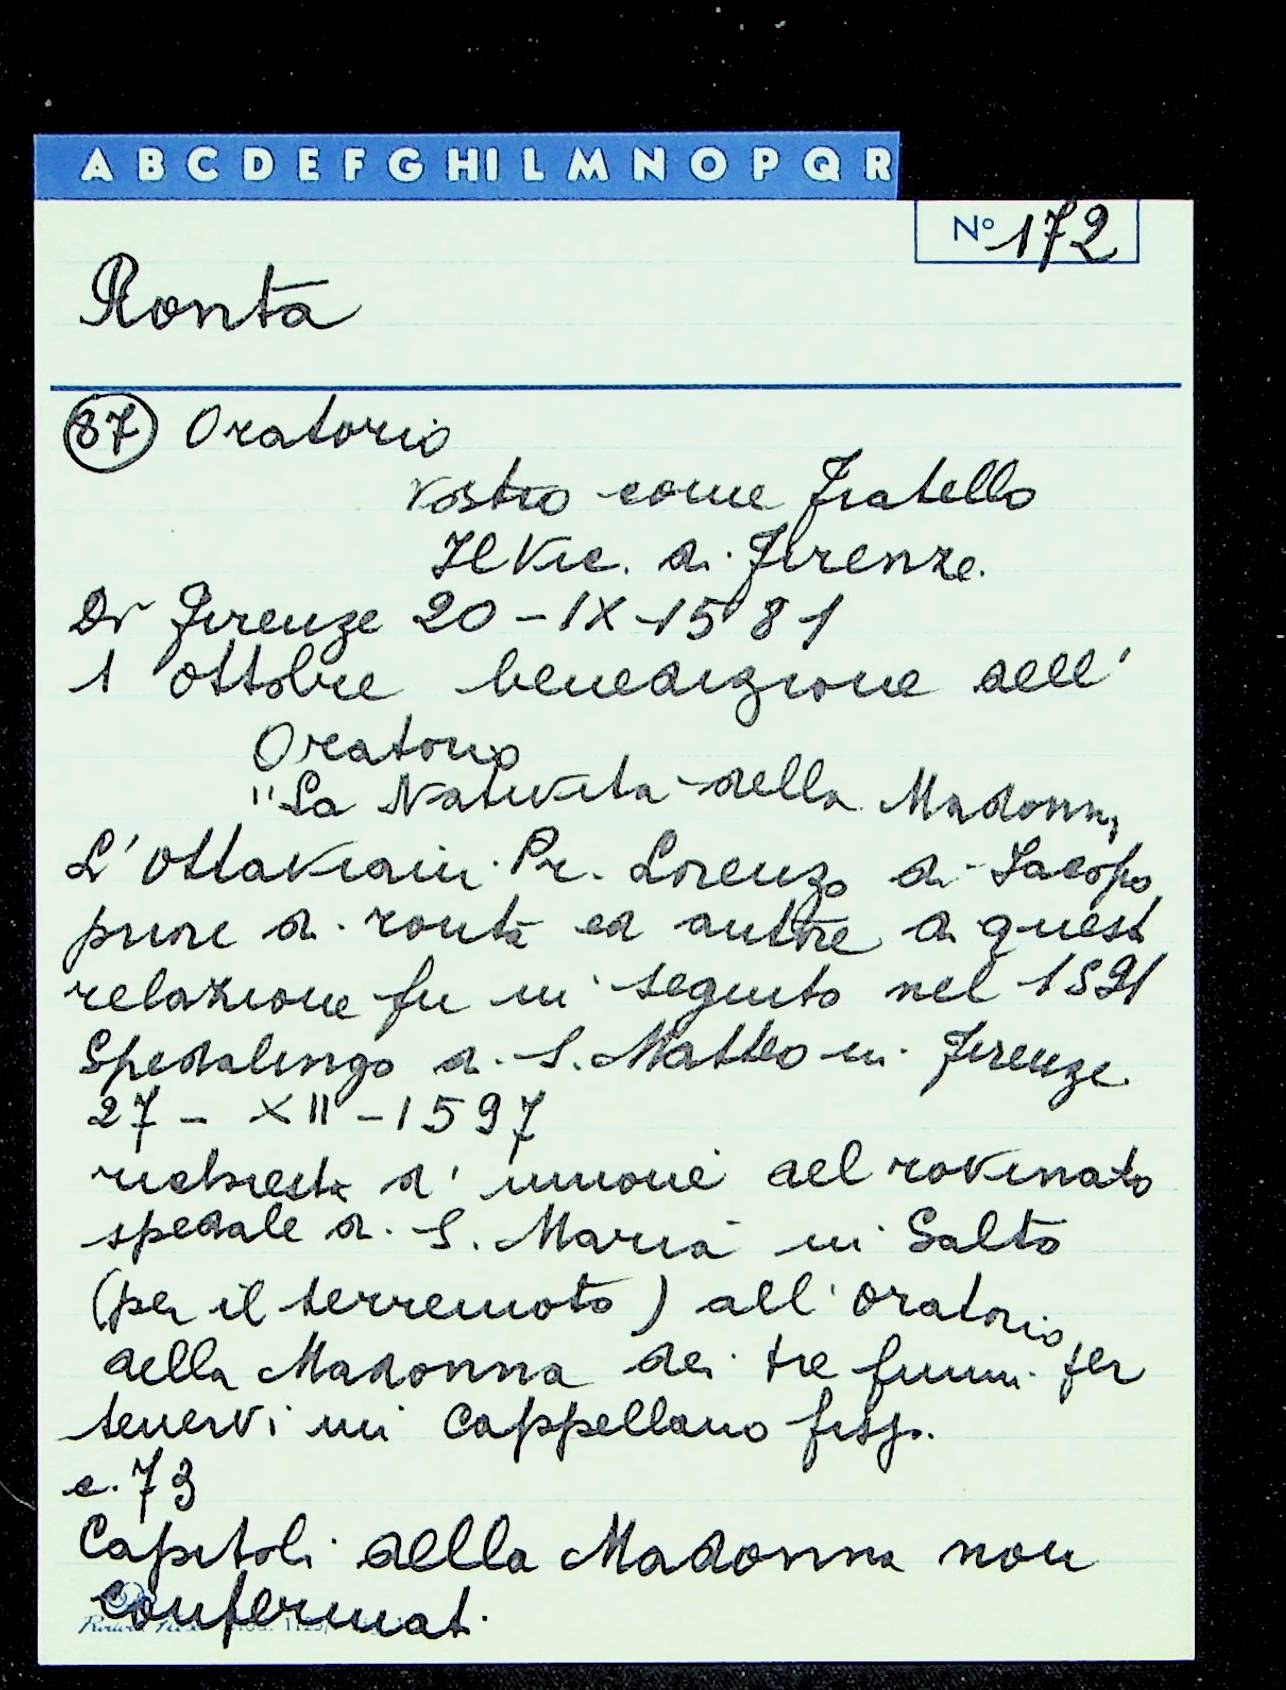 A B C D E F G HI L M N O P Q R
N° 172
Ronta
87 Oratorio
vostro come Fratello
Il Vic. di Firenze.
Di Firenze 20-IX-1581
1 ottobre benedizione dell'
Oratorio
"La Natività della Madonna
L'Ottaviani Pr. Lorenzo di Jacopo
priore di ronta ed autore di quest
relazione fu in seguito nel 1591
Spedalingo di S. Matteo in Firenze
27 - XII - 1597
richiesta d'unione del rovinato
spedale di S. Maria in Salto
(per il terremoto) all'oratorio
della Madonna dei tre fiumi per
tenervi un Cappellano
c. 73
Capitoli della Madonna non
confermati.